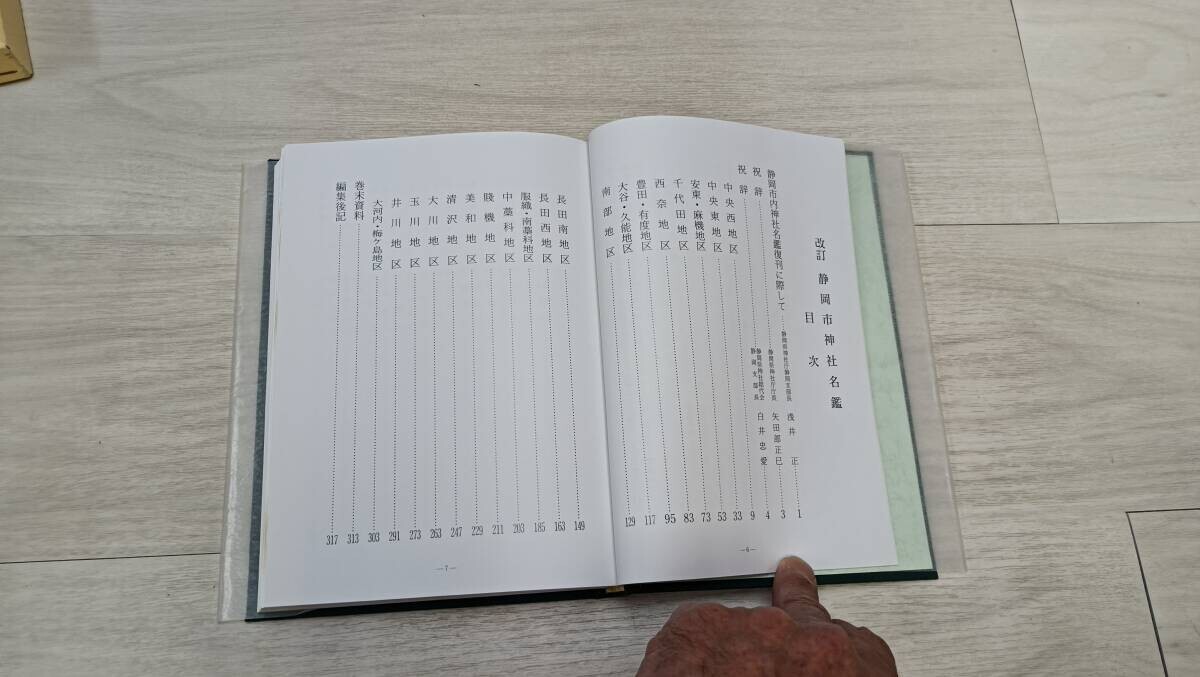 改訂 静岡市神社名鑑
目次
静岡市内神社名鑑復刊に際して……静岡県神社庁静岡支部長 浅井 正 1
祝辞……静岡県神社庁庁長 矢田部正巳 3
祝辞……静岡県神社総代会静岡支部長 白井忠愛 4
中央西地区……9
中央東地区……33
安東・麻機地区……53
千代田地区……73
西奈地区……83
豊田・有度地区……95
大谷・久能地区……117
南部地区……129
—6—
長田南地区……149
長田西地区……163
服織・南藁科地区……185
中藁科地区……203
賤機地区……211
美和地区……229
清沢地区……247
大川地区……263
玉川地区……273
井川地区……291
大河内・梅ヶ島地区……303
巻末資料……313
編集後記……317
—7—